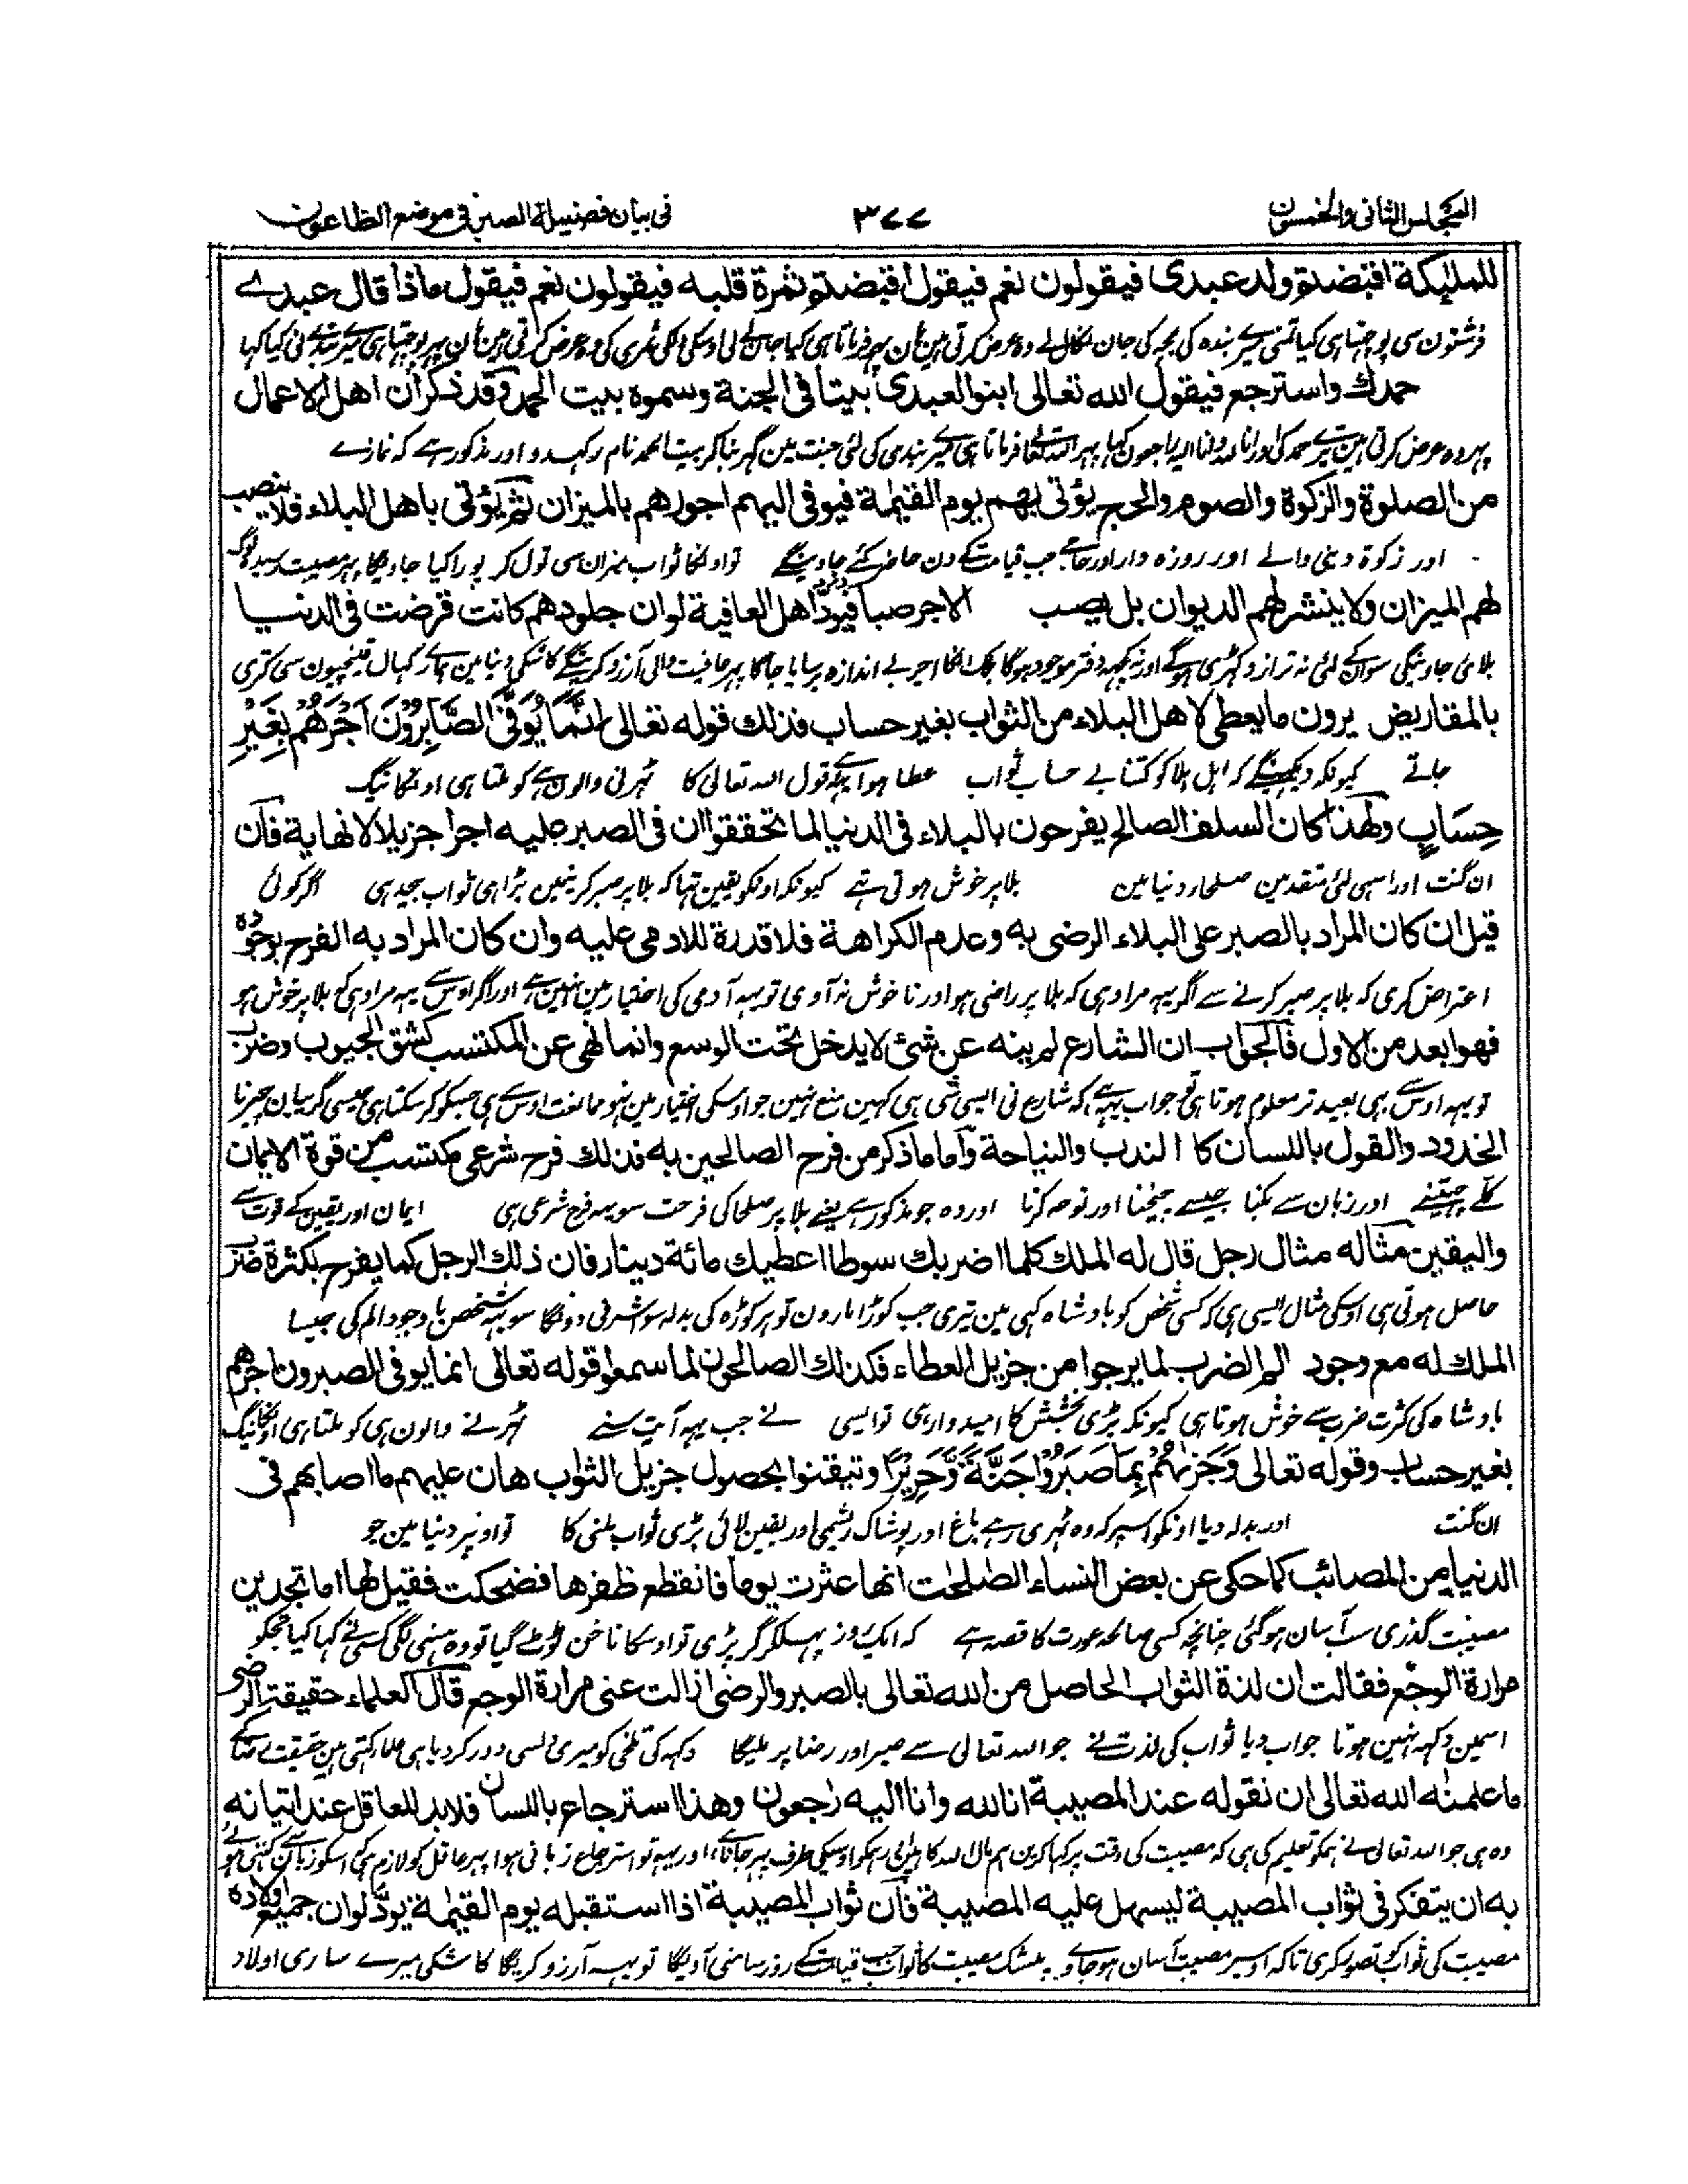 المجلس الثانى والخمسون
٣٧٧
فى بيان فضيلة الصبر فى موضع الطاعون
للمليكة اقبضتم ولد عبدى فيقولون نعم فيقول اقبضتم ثمرة قلبه فيقولون نعم فيقول ماذا قال عبدے
فرشتون سى پوچهتا ہى كيا تمنى ميرے بنده كى بچہ كى جان نكال لے وه عرض كرتى ہين ہان پہر فرماتا ہى كيا جان لے لى اوسكى دلكى ثمرى كى وه عرض كرتى ہين ہان پہر پوچهتا ہى ميرے بندے نى كيا كہا
حمدك واسترجع فيقول الله تعالى ابنوا لعبدى بيتا فى الجنة وسموه بيت الحمد وقد ذكر ان اهل الاعمال
پہر وه عرض كرتى ہين تيرے حمد كى اور انا لله وانا اليہ راجعون كہا پہر الله تعالے فرماتا ہى ميرے بندى كى لئى جنت مين گهر بنا كر بيت الحمد نام ركہدو اور مذكور ہے كہ نمازے
من الصلوة والزكوة والصوم والحج يؤتى بهم يوم القيمة فيوفى اليهم اجورهم بالميزان ثم يؤتى باهل البلاء فلا ينصب
اور زكوة دينى والے اور روزه دار اور حاجے جب قيامتكے دن حاضر كئے جاوينگے تو اونكا ثواب ميزان سى تول كر پورا كيا جاويگا پہر مصيبت رسيده لوگ
لهم الميزان ولا ينشر لهم الديوان بل يصب الاجر صبا فيود اهل العافية لو ان جلودهم كانت قرضت فى الدنيا
بلائى جاوينگى سو انكے لئى نہ ترازو كہڑى ہوگے اور نہ كچهہ دفتر موجود ہوگا بلكہ انكا اجر بے اندازه برسايا جائگا پہر عافيت والى آرزو كرينگے كاشكى دنيا مين ہمارے كہال قينچيون سى كترى
بالمقاريض يرون ما يعطى لاهل البلاء من الثواب بغير حساب فذلك قوله تعالى اِنَّمَا يُوَفَّى الصَّابِرُوْنَ اَجْرَهُمْ بِغَيْرِ
جاتے كيونكہ ديكہينگے كہ اہل بلا كو كتنا بے حساب ثواب عطا ہوا ہے يہہ قول الله تعالى كا ٹہرنى والون ہے كو ملتا ہى اونكا نيگ
حِسَابٍ ولهذا كان السلف الصالح يفرحون بالبلاء فى الدنيا لما تحققوا ان فى الصبر عليه اجرا جزيلا لا نهاية فان
ان گنت اور اسى لئى متقدمين صلحاء دنيا مين بلا پر خوش ہوتى تہے كيونكہ اونكو يقين تہا كہ بلا پر صبر كرنيمين بڑا ہى ثواب بيحد ہى اگر كوئى
قيل ان كان المراد بالصبر على البلاء الرضى به وعدم الكراهة فلا قدرة للادمى عليه وان كان المراد به الفرح بوجوده
اعتراض كرى كہ بلا پر صبر كرنے سے اگر يہہ مراد ہى كہ بلا پر راضى ہو اور ناخوش نہ آوى تو يہہ آدمى كى اختيار مين نہين ہے اور اگر اوس سے يہہ مراد ہى كہ بلا پر خوش ہو
فهو ابعد من الاول فالجواب ان الشارع لم ينه عن شئ لا يدخل تحت الوسع وانما نهى عن المكتسب كشق الجيوب وضرب
تو يہہ اوس سے بہى بعيد تر معلوم ہوتا ہى تو جواب يہہ ہے كہ شارع نى ايسى شى ہى كہين منع نہين جو اوسكى اختيار مين نہو ممانعت اوس سے ہى جسكو كر سكتا ہى جيسى گريبان چيرنا
الخدود والقول باللسان كا الندب والنياحة واما ما ذكر من فرح الصالحين به فذلك فرح شرعى مكتسب من قوة الايمان
كلے پيٹنے اور زبان سے بكنا جيسے چيخنا اور نوحہ كرنا اور وه جو مذكور ہے يعنے بلا پر صلحا كى فرحت سو يہہ فرح شرعى ہى ايمان اور يقين كے قوت سے
واليقين مثاله مثال رجل قال له الملك كلما اضربك سوطا اعطيك مائة دينار فان ذلك الرجل كما يفرح بكثرة ضرب
حاصل ہوتى ہى اوسكى مثال ايسى ہى كہ كسى شخص كو بادشاه كہى مين تيرى جب كوڑا مارون تو ہر كوڑه كى بدلہ سو اشرفى دونگا سو يہہ شخص با وجود الم كى جيسا
الملك له مع وجود الم الضرب لما يرجوا من جزيل العطاء فكذلك الصالحون لما سمعوا قوله تعالى انما يوفى الصبرون اجرهم
بادشاه كى كثرت ضرب سے خوش ہوتا ہى كيونكہ بڑى بخشش كا اميدوار ہى تو ايسى نے جب يہہ آيت سنے ٹہرنے والون ہى كو ملتا ہى اونكا نيگ
بغير حساب وقوله تعالى وَجَزٰىهُمْ بِمَا صَبَرُوْا جَنَّةً وَّحَرِيْرًا وتيقنوا بحصول جزيل الثواب هان عليهم ما اصابهم فى
ان گنت اور بدلہ ديا اونكو اسپر كہ وه ٹہرى رہے باغ اور پوشاك ريشمى اور يقين لائى بڑى ثواب ملنى كا تو اونپر دنيا مين جو
الدنيا من المصائب كما حكى عن بعض النساء الصلحت انها عثرت يوما فانقطع ظفرها فضحكت فقيل لها اما تجدين
مصيبت گذرى سب آسان ہوگئى چنانچہ كسى صالحہ عورت كا قصہ ہے كہ ايك روز پہسلكر گر پڑى تو اوسكا ناخن ٹوٹے گيا تو وه ہنسنى لگى كسى نے كہا كيا تجكو
مرارة الوجع فقالت ان لذة الثواب الحاصل من الله تعالى بالصبر والرضى ازالت عنى مرارة الوجع قال العلماء حقيقة الرضى
اسمين دكہہ نہين ہوتا جواب ديا ثواب كى لذت نے جو الله تعالى سے صبر اور رضا پر مليگا دكہہ كى تلخى كو ميرى لسى دور كرديا ہى علما كہتى ہين حقيقت رضا كے
ما علمنه الله تعالى ان نقوله عند المصيبة انا لله وانا اليه رٰجعون وهذا استرجاع باللسان فلا بد للعاقل عند اتيانه
وه ہى جو الله تعالى نے ہمكو تعليم كى ہى كہ مصيبت كى وقت پر كہا كرين ہم مال الله كا ہين اور ہمكو اوسكى طرف پہر جانا ہے اور يہہ تو استرجاع زبانى ہوا پہر عاقل كو لازم ہى كہ اسكو زبان سے كہتى ہوئے
به ان يتفكر فى ثواب المصيبة ليسهل عليه المصيبة فان ثواب المصيبة اذا استقبله يوم القيمة يود لو ان جميع اولاده
مصيبت كى ثواب كو تصور كرى تاكہ اوسپر مصيبت آسان ہو جاوے بيشك مصيبت كا ثواب جب قيامتكے روز سامنى آويگا تو يہہ آرزو كريگا كاشكى ميرے سارى اولاد